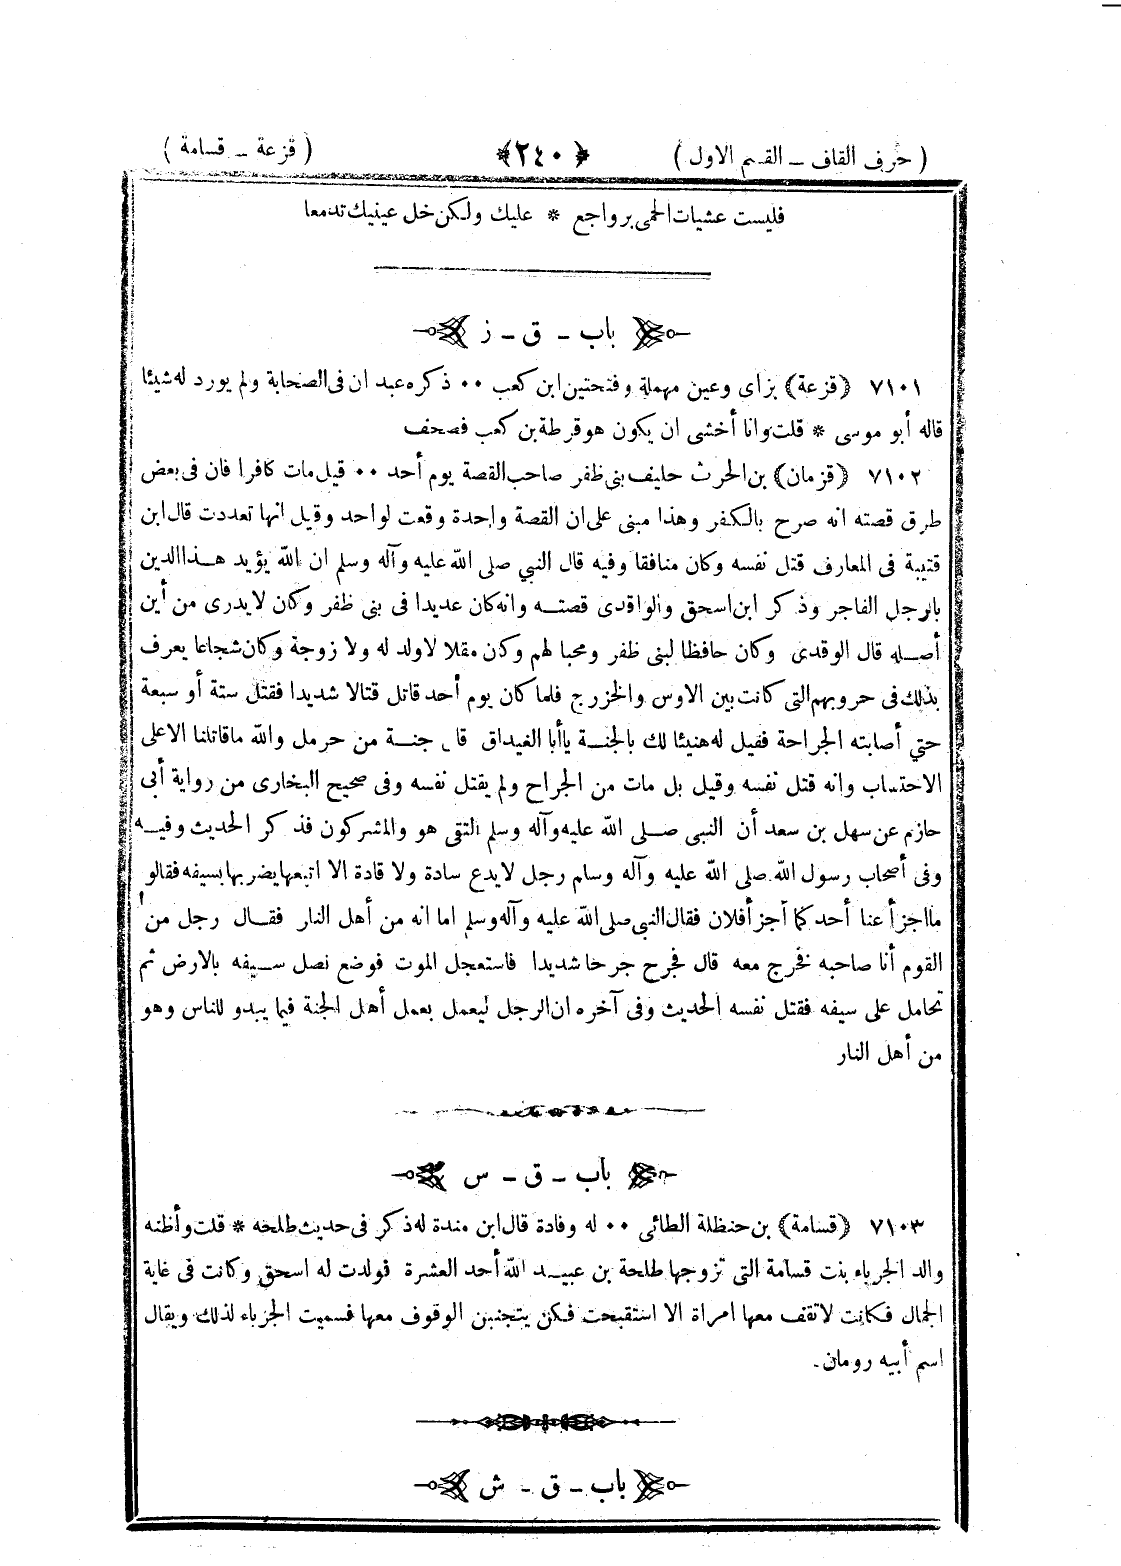 ( حرف القاف - القسم الاول ) ﴿ ٢٤٠ ﴾ ( قزعة - قسامة )
فليست عشيات الحمى برواجع * عليك ولكن خل عينيك تدمعا
باب - ق - ز
٧١٠١ (قزعة) بزاى وعين مهملة وفتحتين ابن كعب ٠٠ ذكره عبدان فى الصحابة ولم يورد له شيئا
قاله أبو موسى * قلت وانا أخشى ان يكون هو قرطة بن كعب فصحف
٧١٠٢ (قزمان) بن الحرث حليف بنى ظفر صاحب القصة يوم أحد ٠٠ قيل مات كافرا فان فى بعض
طرق قصته انه صرح بالكفر وهذا مبنى على ان القصة واحدة وقعت لواحد وقيل انها تعددت قال ابن
قتيبة فى المعارف قتل نفسه وكان منافقا وفيه قال النبي صلى الله عليه وآله وسلم ان الله يؤيد هذا الدين
بالرجل الفاجر وذكر ابن اسحق والواقدى قصته وانه كان عديدا فى بنى ظفر وكان لا يدرى من أين
أصله قال الوقدى وكان حافظا لبنى ظفر ومحبا لهم وكان مقلا لا ولد له ولا زوجة وكان شجاعا يعرف
بذلك فى حروبهم التى كانت بين الاوس والخزرج فلما كان يوم أحد قاتل قتالا شديدا فقتل ستة أو سبعة
حتي أصابته الجراحة فقيل له هنيئا لك بالجنة يا أبا الغيداق قال جنة من حرمل والله ما قاتلنا الا على
الاحتساب وانه قتل نفسه وقيل بل مات من الجراح ولم يقتل نفسه وفى صحيح البخارى من رواية أبى
حازم عن سهل بن سعد أن النبى صلى الله عليه وآله وسلم التقى هو والمشركون فذكر الحديث وفيه
وفى أصحاب رسول الله صلى الله عليه وآله وسلم رجل لا يدع سادة ولا قادة الا اتبعها يضربها بسيفه فقالوا
ما اجزأ عنا أحد كما أجزأ فلان فقال النبى صلى الله عليه وآله وسلم اما انه من أهل النار فقال رجل من
القوم أنا صاحبه فخرج معه قال فجرح جرحا شديدا فاستعجل الموت فوضع نصل سيفه بالارض ثم
تحامل على سيفه فقتل نفسه الحديث وفى آخره ان الرجل ليعمل بعمل أهل الجنة فيما يبدو للناس وهو
من أهل النار
باب - ق - س
٧١٠٣ (قسامة) بن حنظلة الطائى ٠٠ له وفادة قال ابن مندة له ذكر فى حديث طلحه * قلت وأظنه
والد الجرباء بنت قسامة التى تزوجها طلحة بن عبيد الله أحد العشرة فولدت له اسحق وكانت فى غاية
الجمال فكانت لا تقف معها امرأة الا استقبحت فكن يتجنبن الوقوف معها فسميت الجرباء لذلك ويقال
اسم أبيه رومان.
باب - ق - ش